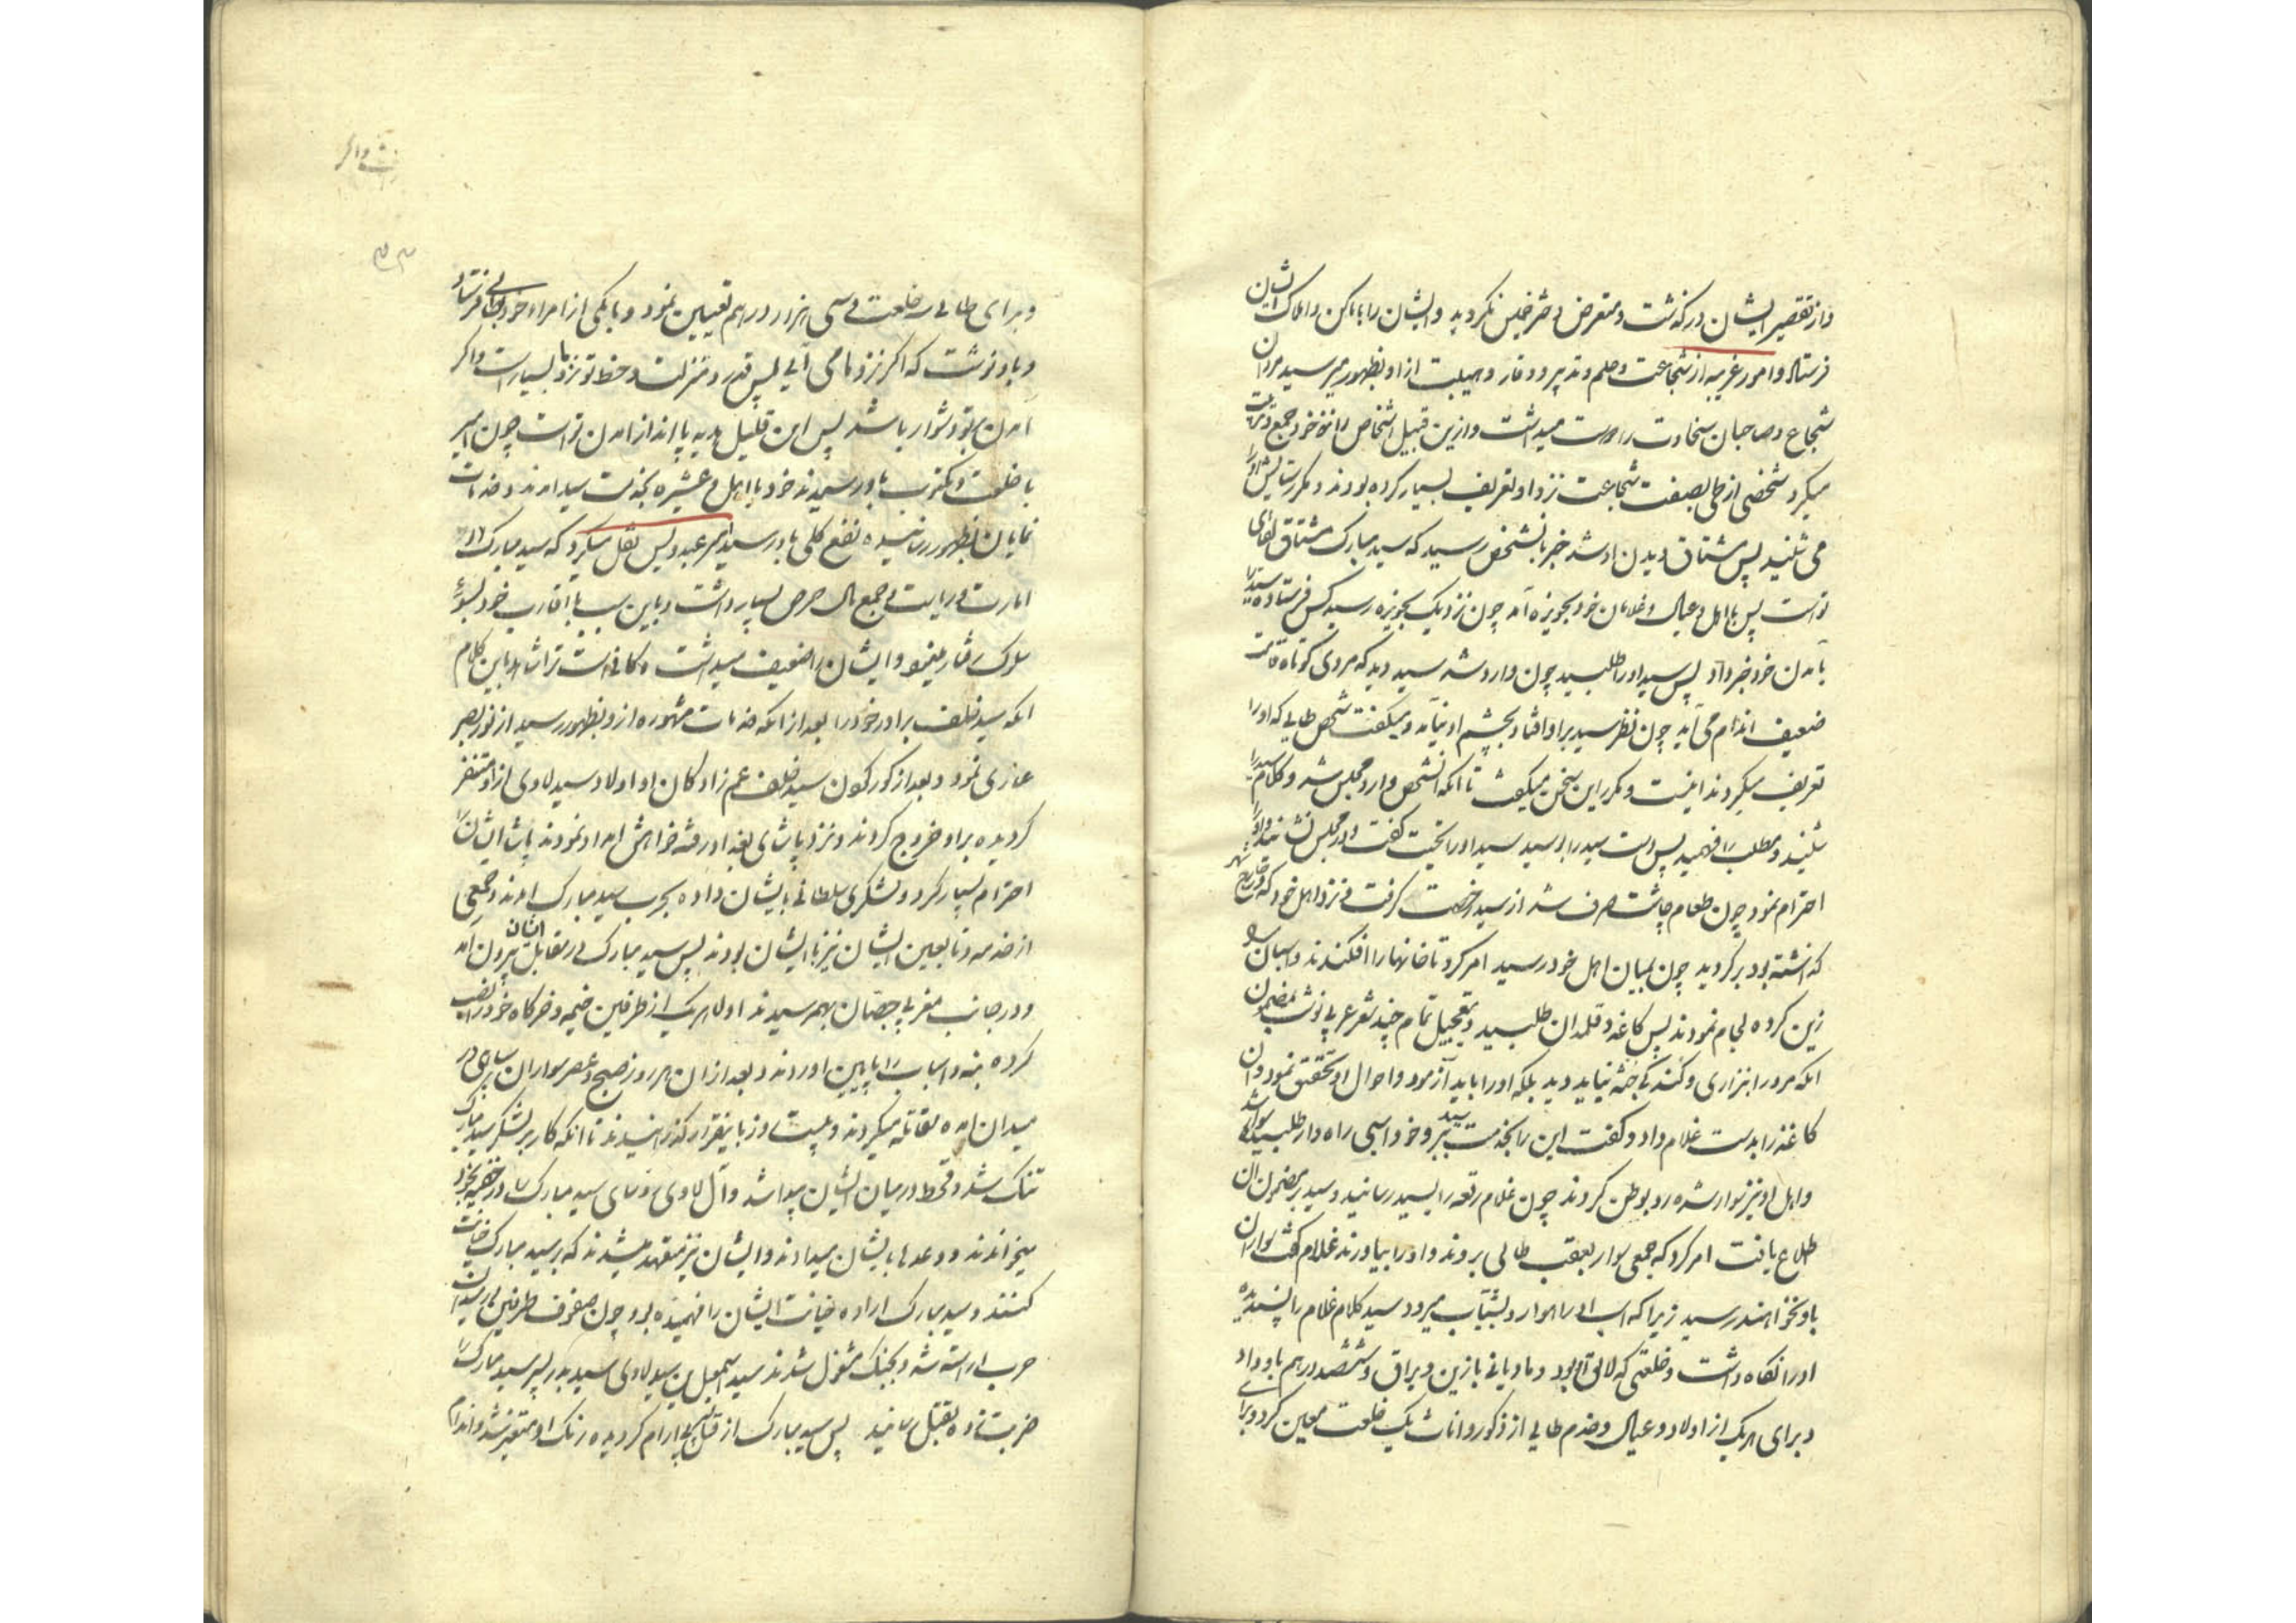 و از تقصیر ایشان درگذشت و متعرض و خلیس نکردید و ایشان را باماکن و املاک ایشان
فرستاد و امور غریبه از شجاعت و حلم و تدبیر و وقار و هیبت از او بظهور میرسید مردان
شجاع و صاحبان سخاوت را دوست میداشت و ازین قبیل اشخاص را نزد خود جمع و تربیت
میکرد شخصی از طی بصفت شجاعت نزد او تعریف بسیار کرده بودند و مکرر ستایش او را
می شنید پس مشتاق دیدن او شد خبر بانشخص رسید که سید مبارک مشتاق لقای
تو است پس با اهل و عیال و غلامان خود بحویزه آمد چون نزدیک بحویزه رسید کس فرستاده سید را
بآمدن خود خبر داد پس سید او را طلبید چون وارد شد سید دید که مردی کوتاه قامت
ضعیف اندام می آید چون نظر سید بر او افتاد بچشم او نیامد و میگفت شخص طایی که او را
تعریف میکردند اینست و مکرر این سخن میگفت تا انکه انشخص وارد مجلس شد و کلام سید را
شنید و مطلب را فهمید پس دست سید را بوسید سید او را تحیت گفت و در مجلس نشانید و او را
احترام نمود چون طعام چاشت صرف شد از سید رخصت گرفت و نزد اهل خود که در خارج شهر
گذاشته بود برگردید چون بمیان اهل خود رسید امر کرد تا خانها را افکندند و اسبان را
زین کرده لجام نمودند پس کاغذ و قلمدان طلبید و بتعجیل تمام چند شعر عربی نوشت بمضمون
انکه مرد را بنزاری و گندگی جثه نباید دید بلکه او را باید آزمود و احوال او تحقیق نمود و ان
کاغذ را بدست غلام داد و گفت این را بخدمت سید ببر و خود اسبی راهوار طلبیده سوار شد
و اهل او نیز سوار شده رو بوطن کردند چون غلام رقعه را بسید رسانید و سید بر مضمون ان
اطلاع یافت امر کرد که جمعی سوار بعقب طائی بروند و او را بیاورند غلام گفت سواران
باو نخواهند رسید زیرا که اسب او راهوار و بشتاب میرود سید کلام غلام را پسندیده
او را نگاه داشت و خلعتی که لائق او بود و مادیانی با زین و یراق و ششصد درهم باو داد
و برای هر یک از اولاد و عیال و خدم طایی از ذکور و اناث یک خلعت معین کرد و برای
و برای طایی سه خلعت و سی هزار درهم تعیین نمود و با یکی از امراء خود فرستاد
و باو نوشت که اگر نزد ما می آیی پس قدر و منزلت و حظ تو نزد ما بسیار است و اگر
آمدن بتو دشوار باشد پس این قلیل هدیه پا انداز امدن تو است چون امیر
با خلعت و مکتوب باو رسیدند خود با اهل و عشیره بخدمت سید امدند و خدمات
نمایان بظهور رسانیده نفع کلی باو رسید امیر عبد ویس نقل میکرد که سید مبارک در
امارت و ریاست و جمع مال حرص بسیار داشت و باین سبب با اقارب خود بسوء
سلوک رفتار مینمود و ایشان را ضعیف میداشت و کافی است ترا شاهد باین کلام
انکه سید خلف برادر خود را بعد از انکه خدمات مشهوره از او بظهور رسید از نور بصر
عاری نمود و بعد از کور کردن سید خلف عم زادگان او اولاد سید لاوی از او متنفر
گردیده بر او خروج کردند و نزد پاشای بغداد رفته خواهش امداد نمودند پاشا ایشان را
احترام بسیار کرد و لشکری سلطانی بایشان داده بحرب سید مبارک امدند و جمعی
از خدمه و تابعین ایشان نیز با ایشان بودند پس سید مبارک در مقابل ایشان بیرون آمد
و در جانب مغربی جصان بهم رسیدند اولا هر یک از طرفین خیمه و خرگاه خود را نصب
کرده بنه و اسباب را پایین اوردند و بعد از ان هر روز صبح و عصر سواران سپاهی در
میدان امده مقاتله میکردند و بیست روز باینقرار گذرانیدند تا انکه کار بر لشکر سید مبارک
تنگ شد و قحط در میان ایشان پیدا شد و آل لاوی رؤسای سید مبارک را در خفیه بخود
میخواندند و وعدها بایشان میدادند و ایشان نیز متعهد میشدند که بر سید مبارک خیانت
کنند و سید مبارک اراده خیانت ایشان را فهمیده بود چون صفوف طرفین در میدان
حرب اراسته شد و بجنگ مشغول شدند سید اسمعیل بن سید لاوی سید بدر پسر سید مبارک را
ضربت زده بقتل رسانید پس سید مبارک از قتل پسر بی ارام گردیده رنگ او متغیر شد و اندام
شد و اگر